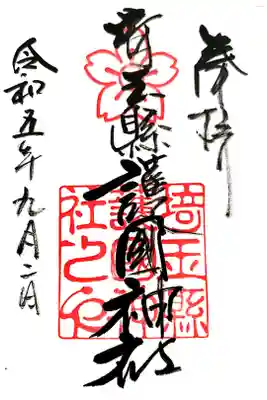 奉拝
埼玉縣護國神社
埼玉縣
護國神
社之印
令和五年九月二日